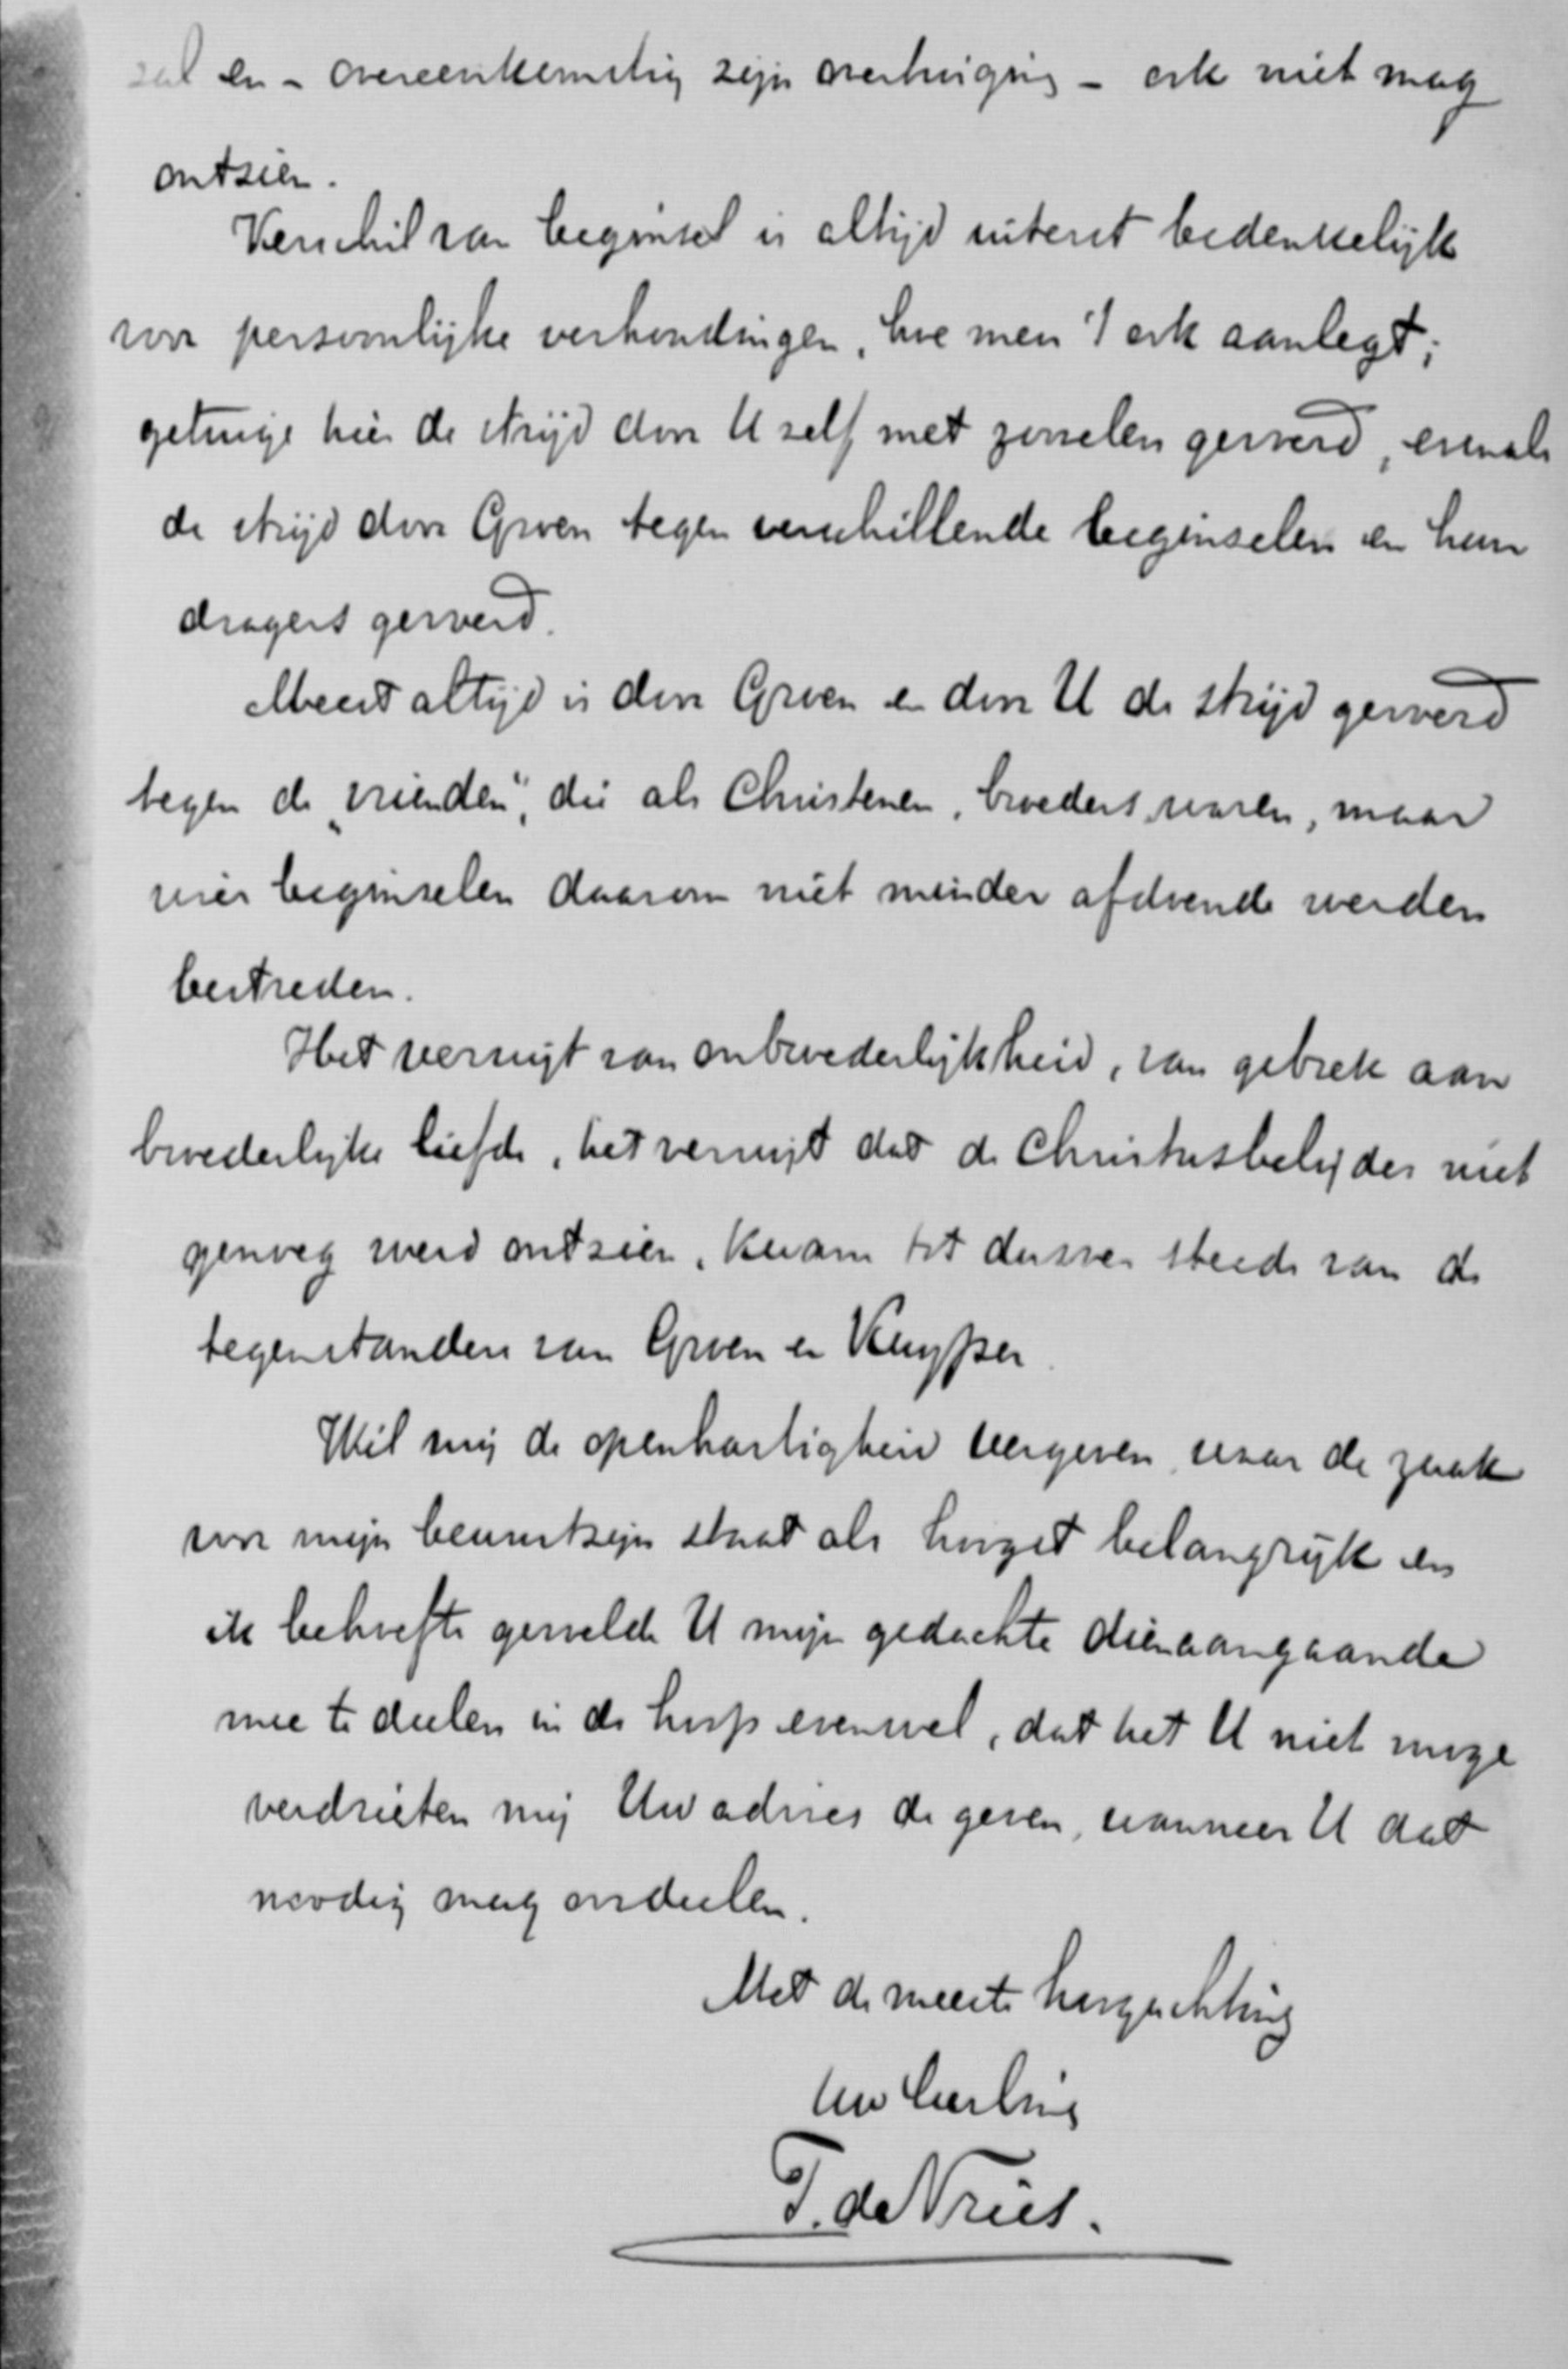 zal en - overeenkomstig zijn overtuiging - ook niet mag
ontzien.
Verschil van beginsel is altijd uiterst bedenkelijk
voor persoonlijke verhoudingen, hoe men 't ook aanlegt;
getuige hier de strijd door U zelf met zoovelen gevoerd, evenals
de strijd door Groen tegen verschillende beginselen en hun
dragers gevoerd.
Meest altijd is door Groen en door U de strijd gevoerd
tegen de „vrienden", die als Christenen, broeders waren, maar
wier beginselen daarom niet minder afdoende werden
bestreden.
Het verwijt van onbroederlijkheid, van gebrek aan
broederlijke liefde, het verwijt dat de Christusbelijder niet
genoeg werd ontzien, kwam tot dusver steeds van de
tegenstanders van Groen en Kuyper.
Wil mij de openhartigheid vergeven, waar de zaak
voor mijn bewustzijn staat als hoogst belangrijk en
ik behoefte gevoelde U mijn gedachte dienaangaande
mee te deelen in de hoop evenwel, dat het U niet moge
verdrieten mij Uw advies de geven, wanneer U dat
noodig mag oordeelen.
Met de meeste hoogachting
Uw leerling
T. de Vries.